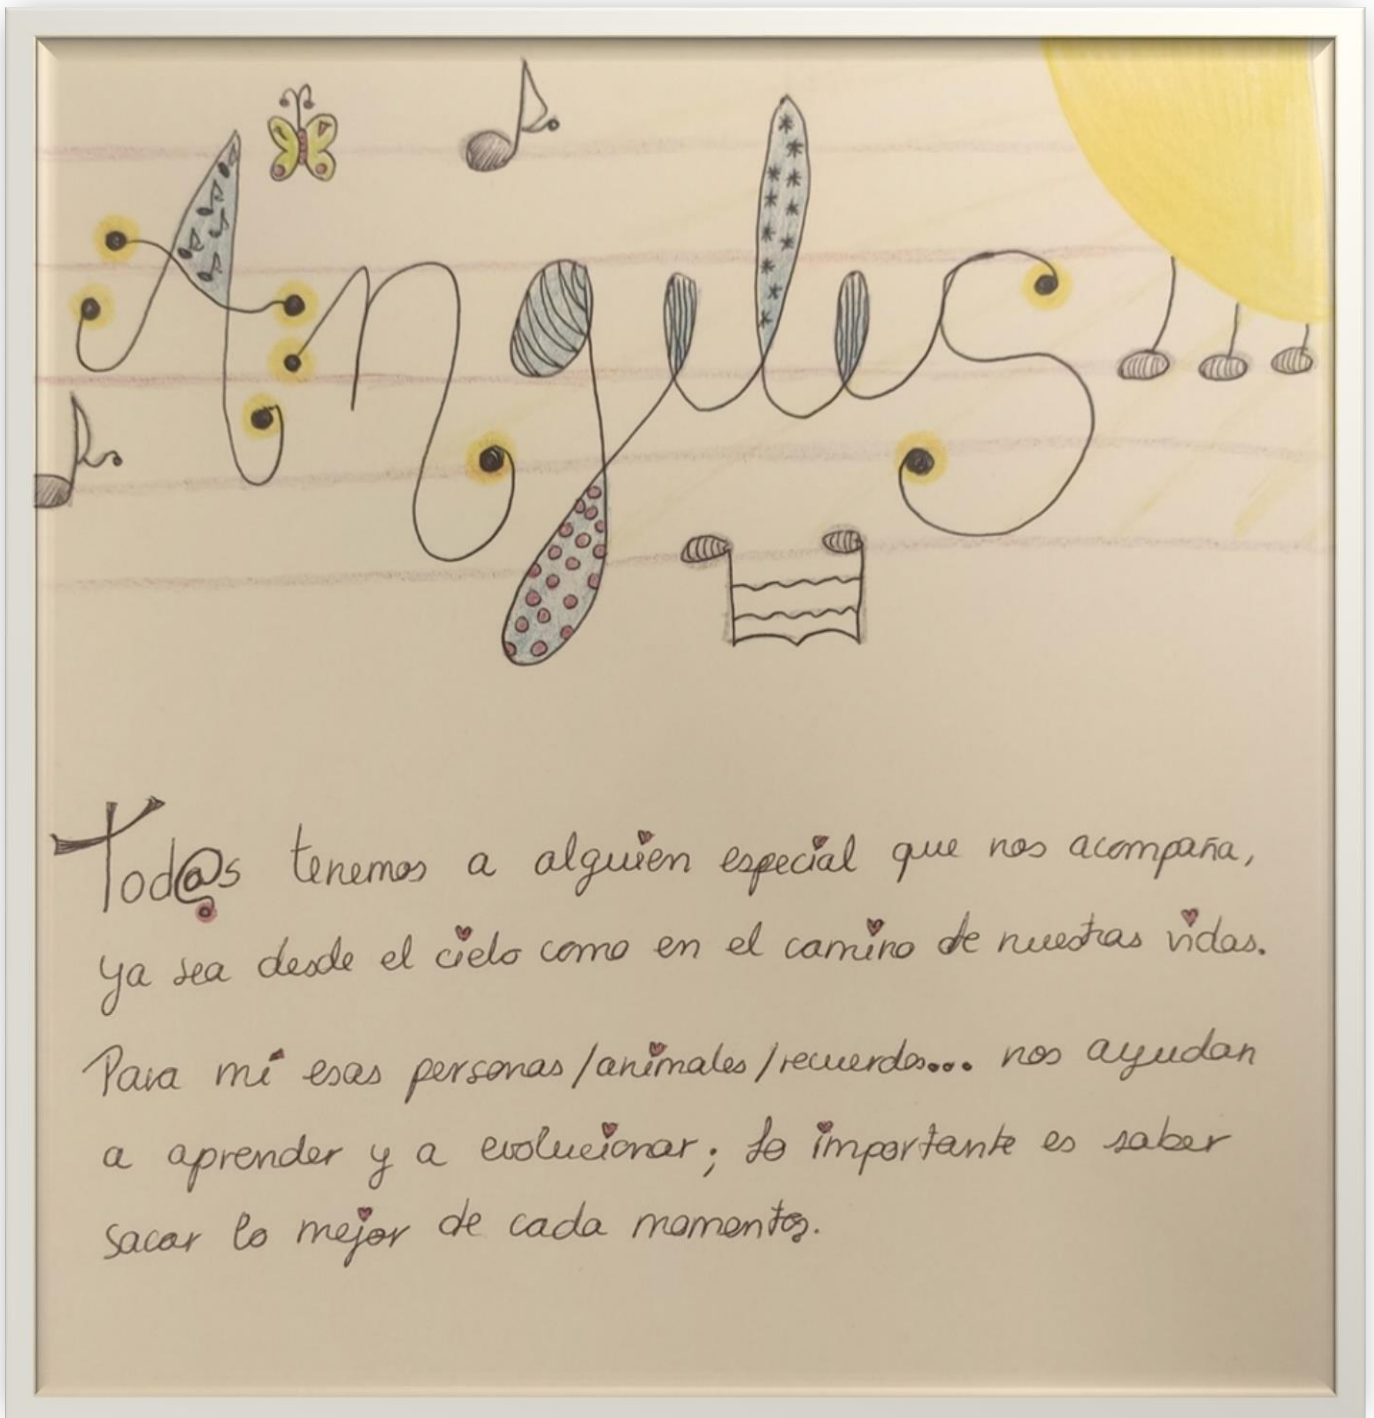 Angeles
Tod@s tenemos a alguien especial que nos acompaña,
ya sea desde el cielo como en el camino de nuestras vidas.
Para mí esas personas/animales/recuerdos... nos ayudan
a aprender y a evolucionar; lo importante es saber
sacar lo mejor de cada momento.